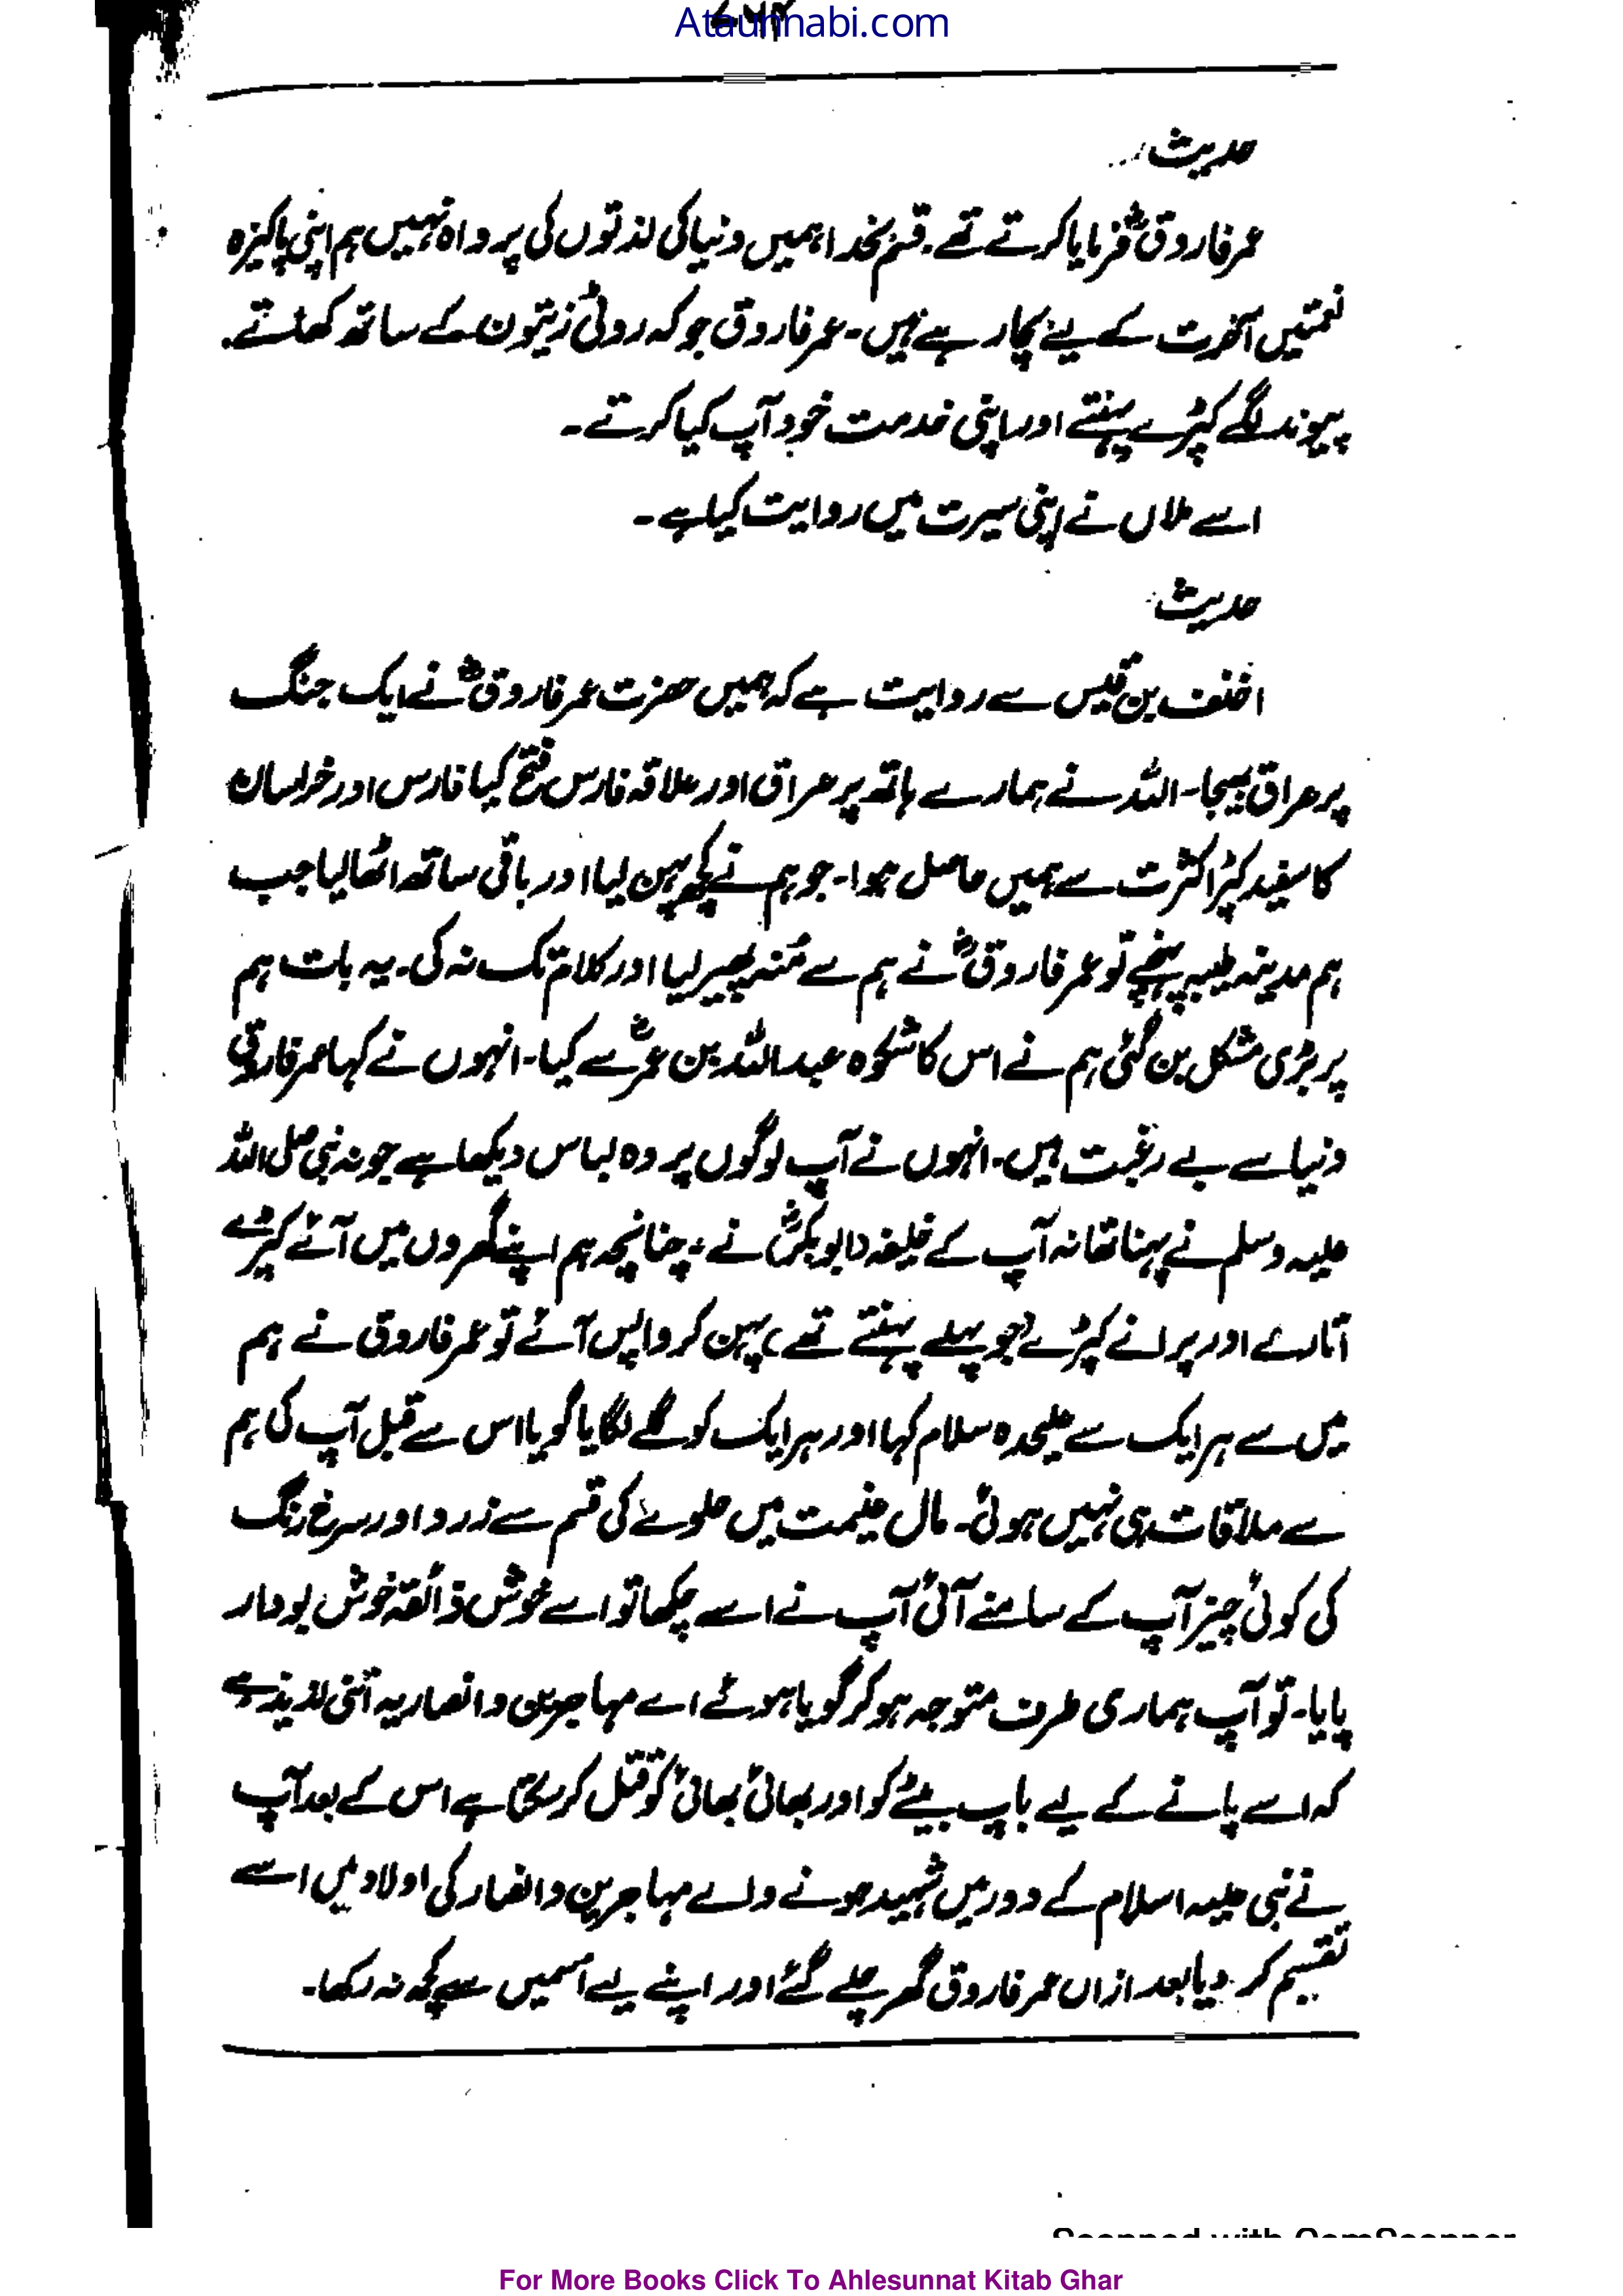 Ataunnabi.com
حدیث
عمر فاروقؓ فرمایا کرتے تھے۔ قسم بخدا ہمیں دنیا کی لذتوں کی پرواہ نہیں ہم اپنی پاکیزہ
نعمتیں آخرت کے لیے بچا رہے ہیں۔ عمر فاروق جو کہ روٹی زیتون کے ساتھ کھاتے۔
پیوند لگے کپڑے پہنتے اور اپنی خدمت خود آپ کیا کرتے۔
اسے ملاں نے اپنی سیرت میں روایت کیا ہے۔
حدیث
اخنف بن قیس سے روایت ہے کہ ہمیں حضرت عمر فاروقؓ نے ایک جنگ
پر عراق بھیجا۔ اللہ نے ہمارے ہاتھ پر عراق اور علاقہ فارس فتح کیا فارس اور خراسان
کا سفید کپڑا کثرت سے ہمیں حاصل ہوا۔ جو ہم نے کچھ پہن لیا اور باقی ساتھ اٹھا لیا جب
ہم مدینہ طیبہ پہنچے تو عمر فاروقؓ نے ہم سے مُنہ پھیر لیا اور کلام تک نہ کی۔ یہ بات ہم
پر بڑی مشکل بن گئی ہم نے اس کا شکوہ عبد اللہ بن عمرؓ سے کیا۔ انہوں نے کہا عمر فاروق
دنیا سے بے رغبت ہیں۔ انہوں نے آپ لوگوں پر وہ لباس دیکھا ہے جو نہ نبی صلی اللہ
علیہ وسلم نے پہنا تھا نہ آپ کے خلیفہ (ابوبکرؓ) نے، چنانچہ ہم اپنے گھروں میں آئے کپڑے
اتارے اور پرانے کپڑے (جو پہلے پہنتے تھے) پہن کر واپس آئے تو عمر فاروق نے ہم
میں سے ہر ایک سے علیحدہ سلام کہا اور ہر ایک کو گلے لگایا گویا اس سے قبل آپ کی ہم
سے ملاقات ہی نہیں ہوئی۔ مال غنیمت میں حلوے کی قسم سے زرد اور سرخ رنگ
کی کوئی چیز آپ کے سامنے آئی آپ نے اسے چکھا تو اسے خوش ذائقہ خوش بودار
پایا۔ تو آپ ہماری طرف متوجہ ہو کر گویا ہوئے اے مہاجرین و انصار یہ اتنی لذیذ ہے
کہ اسے پانے کے لیے باپ بیٹے کو اور بھائی بھائی کو قتل کر سکتا ہے اس کے بعد آپ
نے نبی علیہ اسلام کے دور میں شہید ہونے والے مہاجرین و انصار کی اولاد میں اسے
تقسیم کر دیا بعد ازاں عمر فاروق گھر چلے گئے اور اپنے لیے اسمیں سے کچھ نہ رکھا۔
Scanned with CamScanner
For More Books Click To Ahlesunnat Kitab Ghar